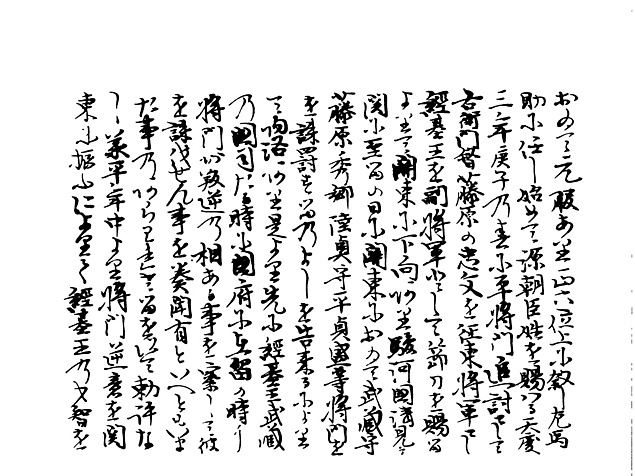 おゐて元服あり正六位上に叙し左馬
助に任し始めて源朝臣姓を賜はる天慶
三年庚子乃春に平将門追討として
右衛門督藤原の忠文を征東将軍とし
経基王を副将軍として節刀を賜る
よりて関東に下向ありし駿河国清見か
関に至るの日に関東におゐて武蔵守
藤原ノ秀郷陸奥守平貞盛等将門を
を誅罰する乃よしを告来るによりて
物語ありし是より先に経基王武蔵
乃国司たる時に国府に在留の時
将門か叛逆乃相ある事を察して彼
を誅伐せん事を奏聞有といへともいま
た事乃あらはれさるをもて勅許な
し承平年中より将門逆意を関
東に振ふによりて経基王乃才智を